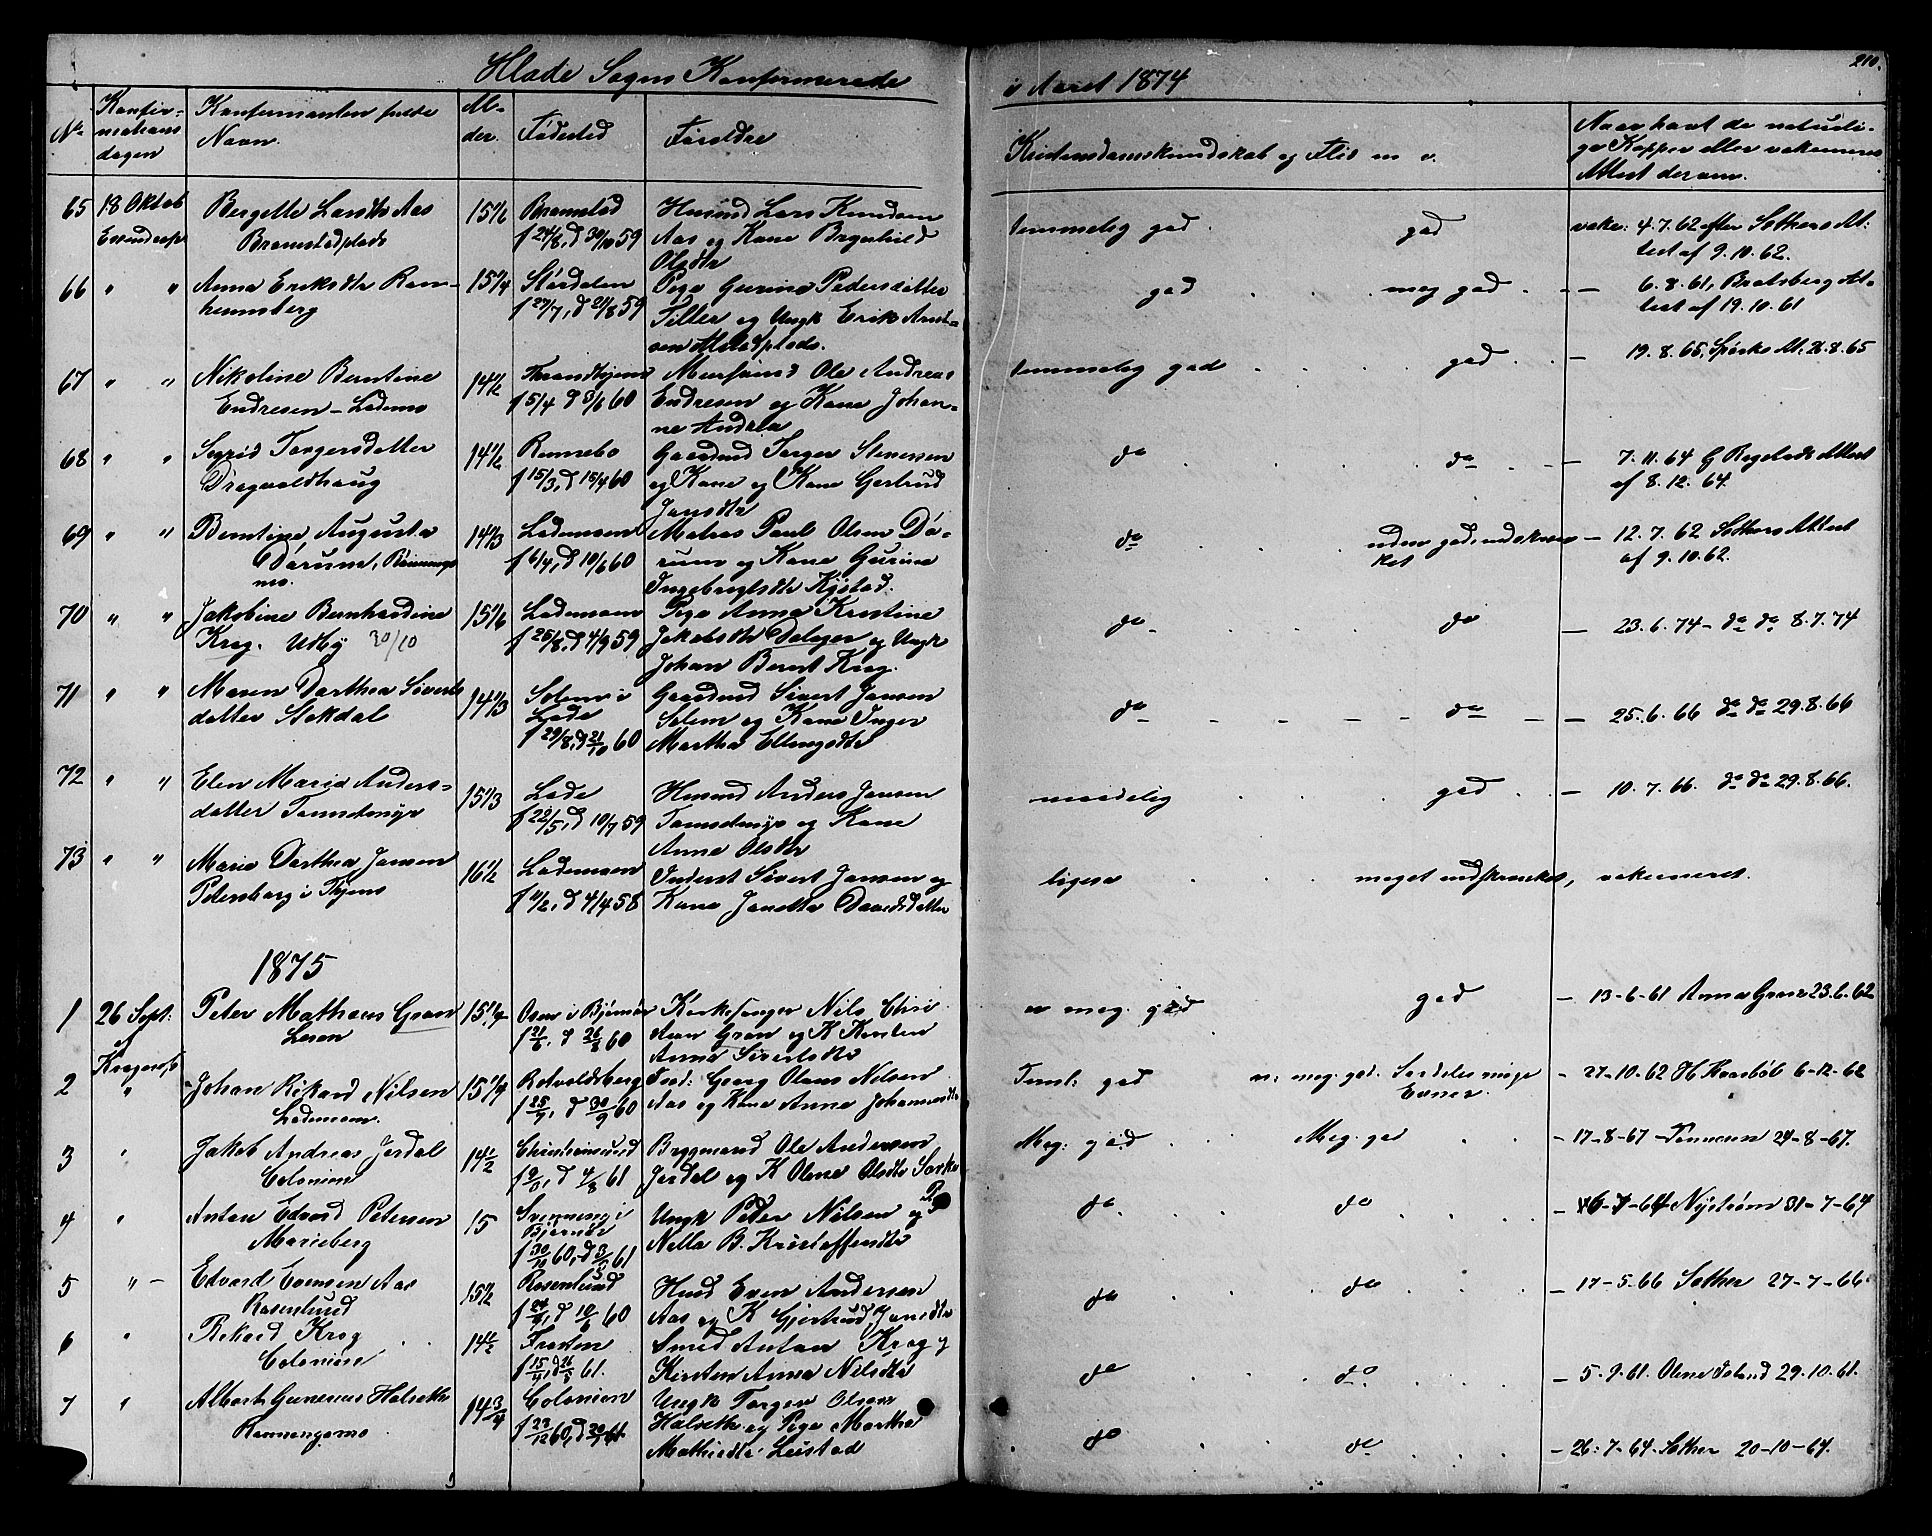 Hlade Sogns Konfirmerede
i Aaret 1874
210.
No
Konfir-
mations
dagen
Konfirmantens fulde
Navn.
Al-
der.
Fødested
Forældre
Kristendomskundskab og Flid m v.
Naar havt de naturli-
ge Kopper eller vakcineret
Attest derom.
65 18 Oktob
Bergette Larsdtr Aas
Bromstadplads
15 1/6
Bromstad
f 24/8, d 30/10 59
Husmd Lars Knudsen
Aas og Kone Brynhild
Olsdtr
temmelig god. god
vakc: 4.7.62 efter Sothers At:
test af 9.10.62.
66 " "
Anna Eriksdtr Ram-
hennsberg
15 1/4
Stördalen
f 27/7, d 21/8 59
Pige Gurine Pedersdatter
Siller og Ungk Erik Arnt-
sen
god . . . meg god . . —
6.8.61, Bratsberg At-
test af 19.10.61
67 " "
Nikoline Berntine
Endresen - Lademo
14 1/2
Throndhjem
f 5/4 d 3/6 60
Murfmd Ole Andreas
Endresen og Kone Johan-
ne Andrea
temmelig god . . . god . . —
19.8.65, Sparbo At. 26.8.65
68 " "
Sigrid Torgersdatter
Dragvoldhaug
14 1/2
Rennebo
f 15/3, d 15/4 60
Gaardmd Torger Stenersen
og Kone og Kone Gertrud
Jonsdtr
do . . . do . . —
7.11.64 G Rogstads Attest
af 8.12.64.
69 " "
Berntine Augusta
Dörum, Rönnings
mo.
14 1/3
Lademoen
f 6/4, d 10/6 60
Matros Paul Olsen Dö-
rum og Kone Gurine
Ingebrigtsdtr Kystad.
do . . . uden god, indskræn-
ket
12.7.62 Sothers Attest
af 9.10.62.
70 " "
Jakobine Bernhardine
Krog. Udby 30/10
15 1/6
Lademoen
f 25/8, d 4/9 59
Pige Anna Kristine
Jakobsdtr Dalager og Ungk
Johan Bernt Krog.
do . . . do —
23.6.74 - do do 8.7.74
71 " "
Maren Dorthea Siverts
datter Stokdal
14 1/3
Solem i
Lade
f 29/8, d 21/10 60
Gaardmd Sivert Jonsen
Solem og Kone Inger
Martha Ellingsdtr
do - - - do - —
25.6.66 do do 29.8.66
72 " "
Elen Maria Anders-
datter Tomsetmyr
15 1/3
Lade
f 22/5, d 10/7 59
Husmd Anders Jonsen
Tomsetmyr og Kone
Anne Olsdtr
maadelig . . . god . . —
10.7.66. do do 29.8.66.
73 " "
Marie Dorthea Jonsen
Petersborg i Thjem
16 1/2
Lademoen
f 1/2, d 4/4 58
Inderst Sivert Jonsen og
Kone Janetta Davidsdatter
ligesa . . . meget indskrænket, vakcineret.
1875
1 26 Sept:
Peter Mathæus Gran
Leren
15 1/4
Osen i Bjørnør
f 21/6, d 26/8 60
Kirkesanger Nils Chri
stian Gran og K Kirsten
Anna Sivertsdtr
meg. god god —
13-6-61 Anna Gran 23.6.62
2 "
Johan Rikard Nilsen
Lademoen.
Rotvoldsberg
f 25/7, d 30/9 60
Georg Olaus Nilsen
Aas og Kone Anna Johannesdtr
Teml: god n: meg. god. Serdeles ringe
Evner. -
27-10-62 H Kvarbøl 6-12-62
3 "
Jakob Andreas Jerdal
Colonien
14 1/2
Christiansund
Bryggmand Ole Andersen
Jerdal og K Olene Olsdtr
Meg. god . . Meg. god . . —
17-8-67 - Tonnesen 24-8-67.
4 "
Anton Edvard Petersen
Marieberg
15
Svenning i
Bjørnør
f 30/10 60, d 61
Ungk Peder Nilsen og
Nella B. Kristoffersdtr
do . do . . . —
Nystrøm 31-7-64
5 " —
Edvard Evensen Aas
Rosenlund
15 1/2
Rosenlund
60
Husmd Even Andersen
Aas og K Gjertrud Jonsdtr
do . do . . —
17-5-66 Sother 27-7-66
6 "
Rikard Krog
Colonien
14 1/2
Frosten
f 15/4, d 26/5 61.
Smed Anton Krog og
Kirsten Anna Nilsdtr
do . . do . . . —
5.9.61. Olene Island 29.10.61.
7 "
Albert Gunerius Halseth
Rønningsmo
14 3/4
Colonien
f 23/12 60, d 20/1 61
Ungk Torger Olsen
Halseth og Pige Martha
Mathisdtr Leistad
do . . do . . —
26.7-64. Sother 20-10-64.